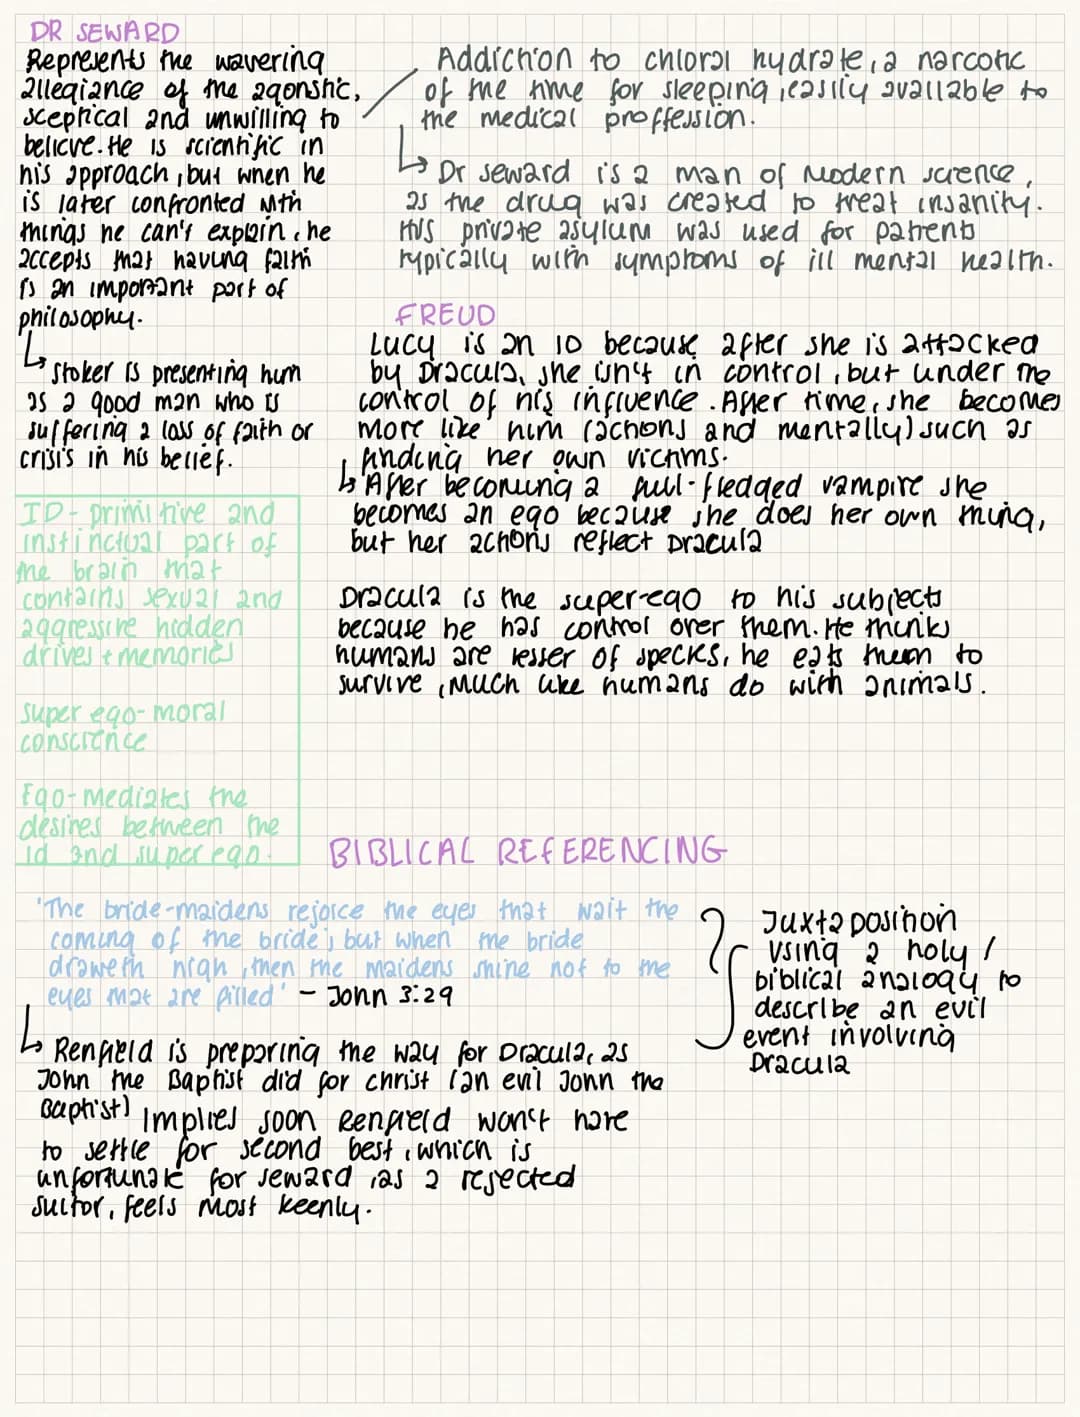 DR SEWARD
Represents the wavering
allegiance of the agonstic,
sceptical and unwilling to
believe. He is scientific in
his approach, but when he
is later confronted with
things he can't explain, he
accepts that having faith
is an important part of
philosophy.
↳ Stoker is presenting him
as a good man who is
suffering a loss of faith or
crisis in his belief.
Addiction to chloral hydrate, a narcotic
of the time for sleeping, easily available to
the medical proffession.
↳ Dr seward is a man of modern science,
as the drug was created to treat insanity.
His private asylum was used for patients
typically with symptoms of ill mental health.
FREUD
Lucy is an ID because after she is attacked
by Dracula, she isn't in control, but under the
control of his influence. After time, she becomes
more like him (actions and mentally) such as
finding her own victims.
↳ After becoming a full-fledged vampire she
becomes an ego because she does her own thing,
but her actions reflect Dracula
Dracula is the super-ego to his subjects
because he has control over them. He thinks
humans are lesser of specks, he eats them to
survive, much like humans do with animals.
ID - primitive and
instinctual part of
the brain that
contains sexual and
aggressive hidden
drives + memories
super ego - moral
conscience
Ego - mediates the
desires between the
id and super ego.
BIBLICAL REFERENCING
'The bride-maidens rejoice the eyes that wait the
coming of the bride; but when the bride
draweth nigh, then the maidens shine not to the
eyes that are filled' - John 3:29
↳ Renfield is preparing the way for Dracula, as
John the Baptist did for christ (an evil John the
Baptist) Implies soon Renfield won't have
to settle for second best, which is
unfortunate for seward, as a rejected
suitor, feels most keenly.
Juxtaposition
using a holy /
biblical analogy to
describe an evil
event involving
Dracula